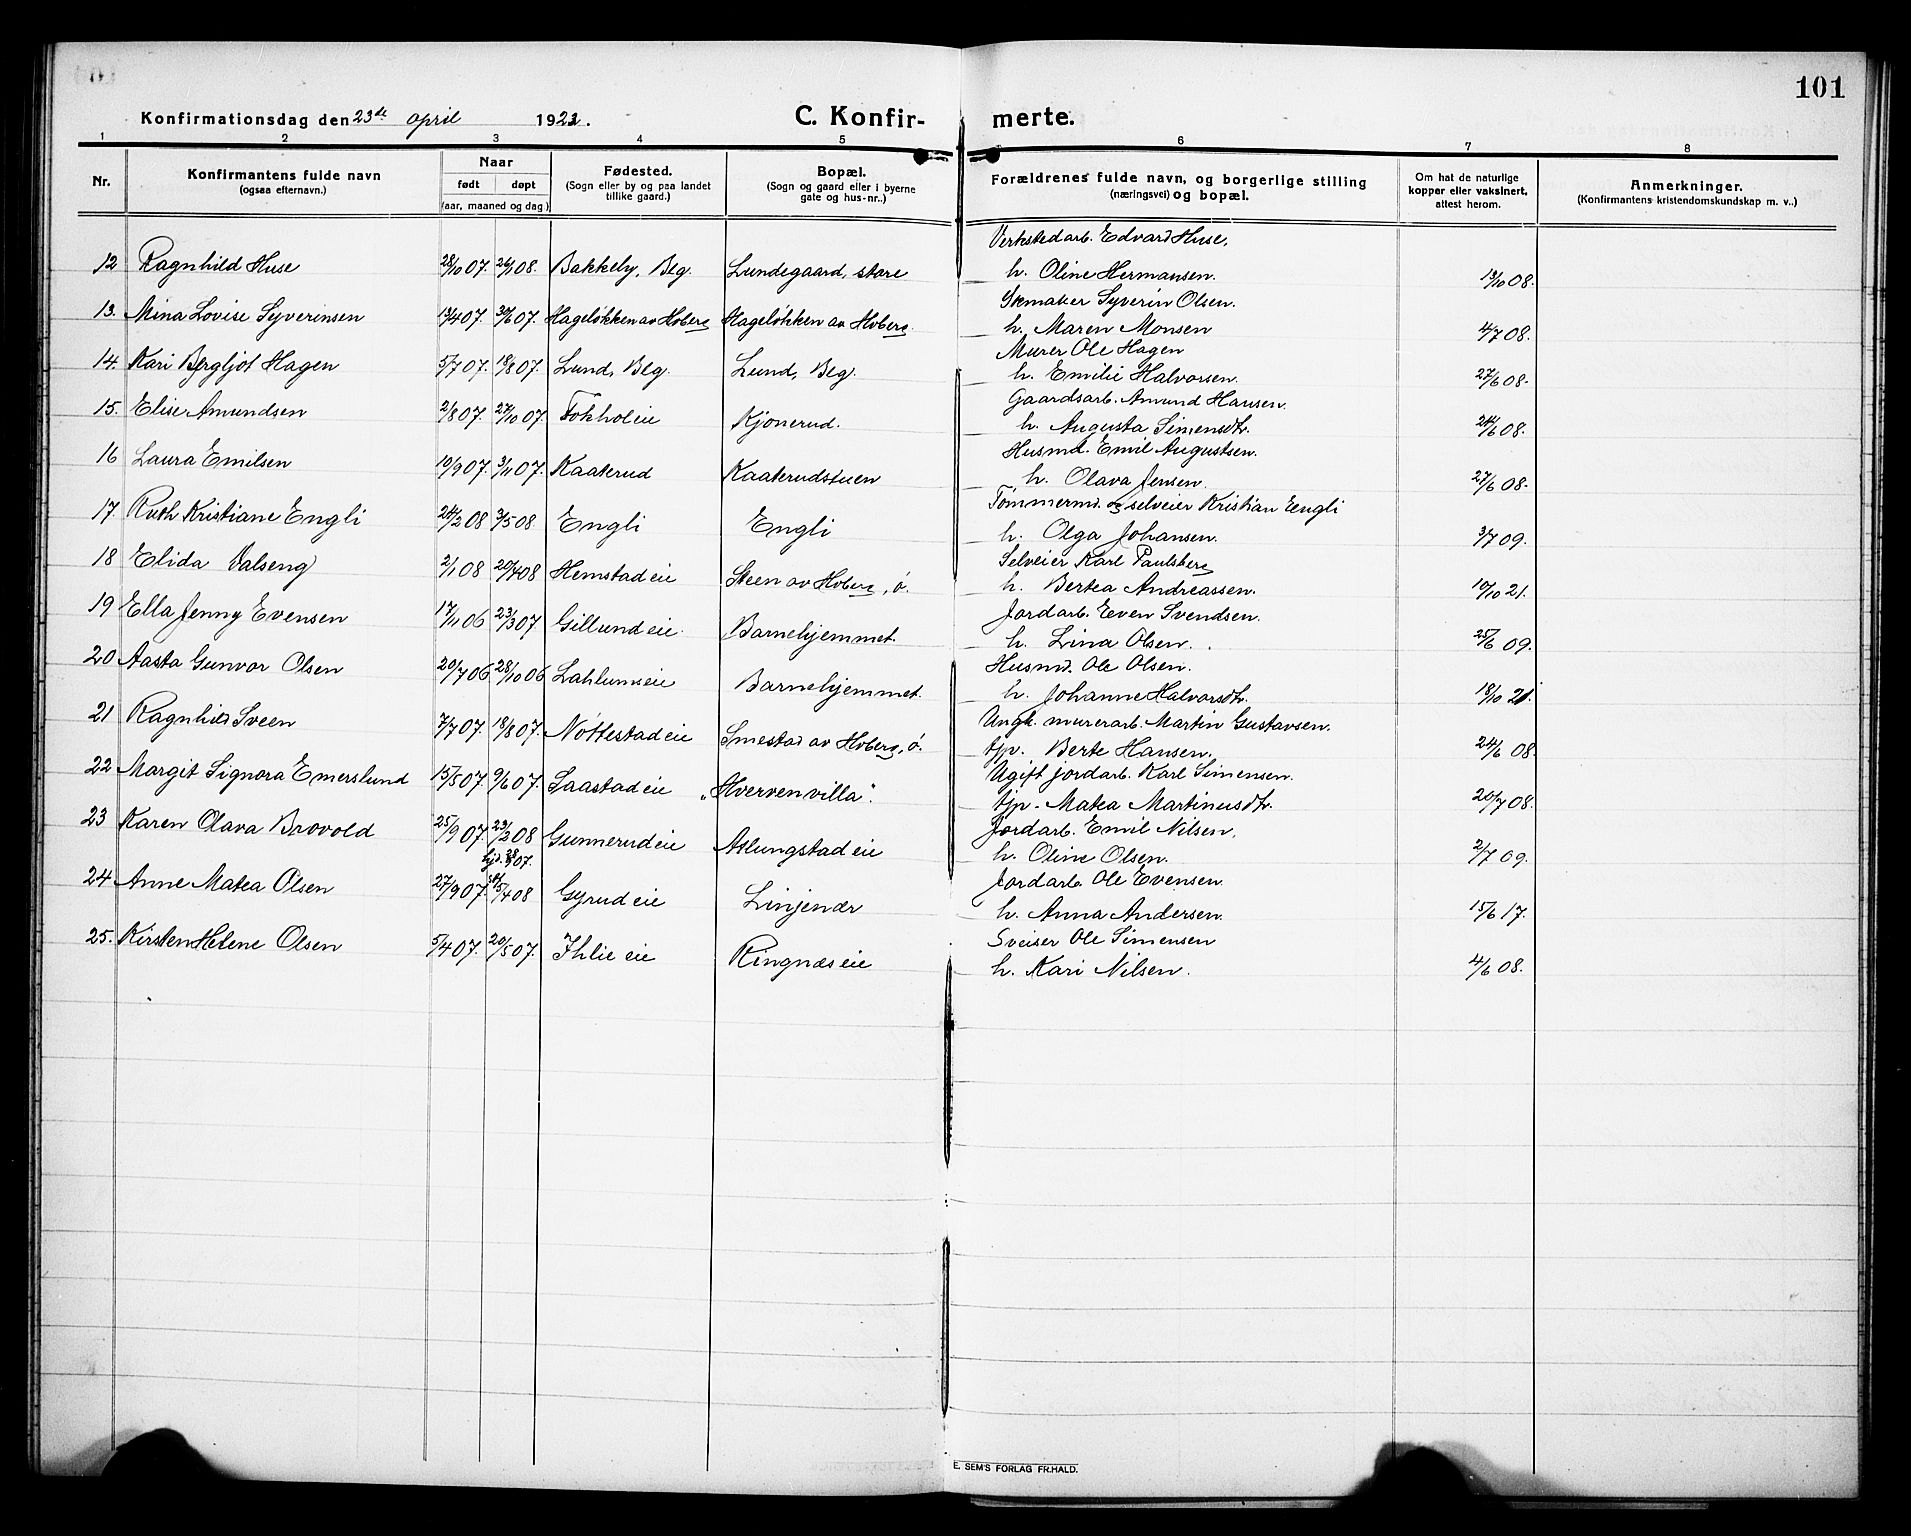 101
Konfirmationsdag den 23de april 1922. C. Konfir- merte.
1 2 3 4 5 6 7 8
Nr. Konfirmantens fulde navn (ogsaa efternavn.) Naar født døpt (aar, maaned og dag) Fødested. (Sogn eller by og paa landet tillike gaard.) Bopæl. (Sogn og gaard eller i byerne gate og hus-nr..) Forældrenes fulde navn, og borgerlige stilling (næringsvei) og bopæl. Om hat de naturlige kopper eller vaksinert, attest herom. Anmerkninger. (Konfirmantens kristendomskundskap m. v..)
Verkstedarb. Edvard Huse,
12 Ragnhild Huse 28/10 07. 26/1 08. Bakkely, Blg. Lundegaard, store h. Oline Hermansen. 13/10 08.
Skmaker Syverin Olsen.
13. Mina Lovise Syverinsen 13/4 07. 30/6 07. Hageløkken av Hoberg Hageløkken av Hoberg. h. Maren Monsen 4/7 08.
Murer Ole Hagen
14. Kari Bergljot Hagen 5/7 07. 18/8 07. Lund, Blg. Lund, Blg. h. Emilie Halvorsen. 27/6 08.
Gaardsarb. Amund Hansen.
15. Elise Amundsen 2/8 07. 27/10 07. Fokhol eie Kjonerud. h. Augusta Simensdtr. 24/6 08.
Husmd. Emil Augustsen.
16 Laura Emilsen 10/9 07. 3/11 07. Kaaterud Kaaterudstuen h. Olava Jensen. 27/6 08.
Tømmermd. og selveier Kristian Eengli
17. Ruth Kristiane Engli 24/2 08 3/5 08. Engli Engli h. Olga Johansen. 3/7 09.
Selveier Karl Paulsberg
18 Elida Valseng 2/1 08 20/4 08 Hemstad eie Steen av Hoberg, ø. h. Bertea Andreassen. 10/10 21.
Jordarb. Even Svendsen.
19 Ella Jenny Evensen 17/11 06 23/3 07 Gillund eie. Barnehjemmet. h. Lina Olsen. 25/6 09.
Husmd. Ole Olsen.
20 Aasta Gunvor Olsen 20/7 06 28/10 06 Lahlumseie Barnehjemmet. h. Johanne Halvorsdtr. 18/10 21.
Ungk. murerarb. Martin Gustavsen.
21 Ragnhild Sveen 7/7 07. 18/8 07. Nøttestad eie Smestad av Hoberg, ø. tjp. Berte Hansen. 24/6 08.
Ugift jordarb. Karl Simensen.
22 Margit Signora Emerslund 15/5 07. 9/6 07. Saastad eie „Hvervenvilla". tjp. Matea Martinusdtr. 20/7 08.
Jordarb. Emil Nilsen.
23 Karen Olava Brovold 25/9 07. 23/2 08 Gunnerud eie Aslungstad eie h. Oline Olsen. 2/7 09.
Jordarb. Ole Evensen
24 Anne Matea Olsen 27/9 07. 5/4 08 Gyrud eie Linjenær h. Anna Andersen. 15/6 17.
Sveiser Ole Simensen
25. Kirsten Helene Olsen 5/4 07. 20/5 07. Ihlie eie Ringnæs eie h. Kari Nilsen. 4/6 08.
E. SEM'S FORLAG FR.HALD.